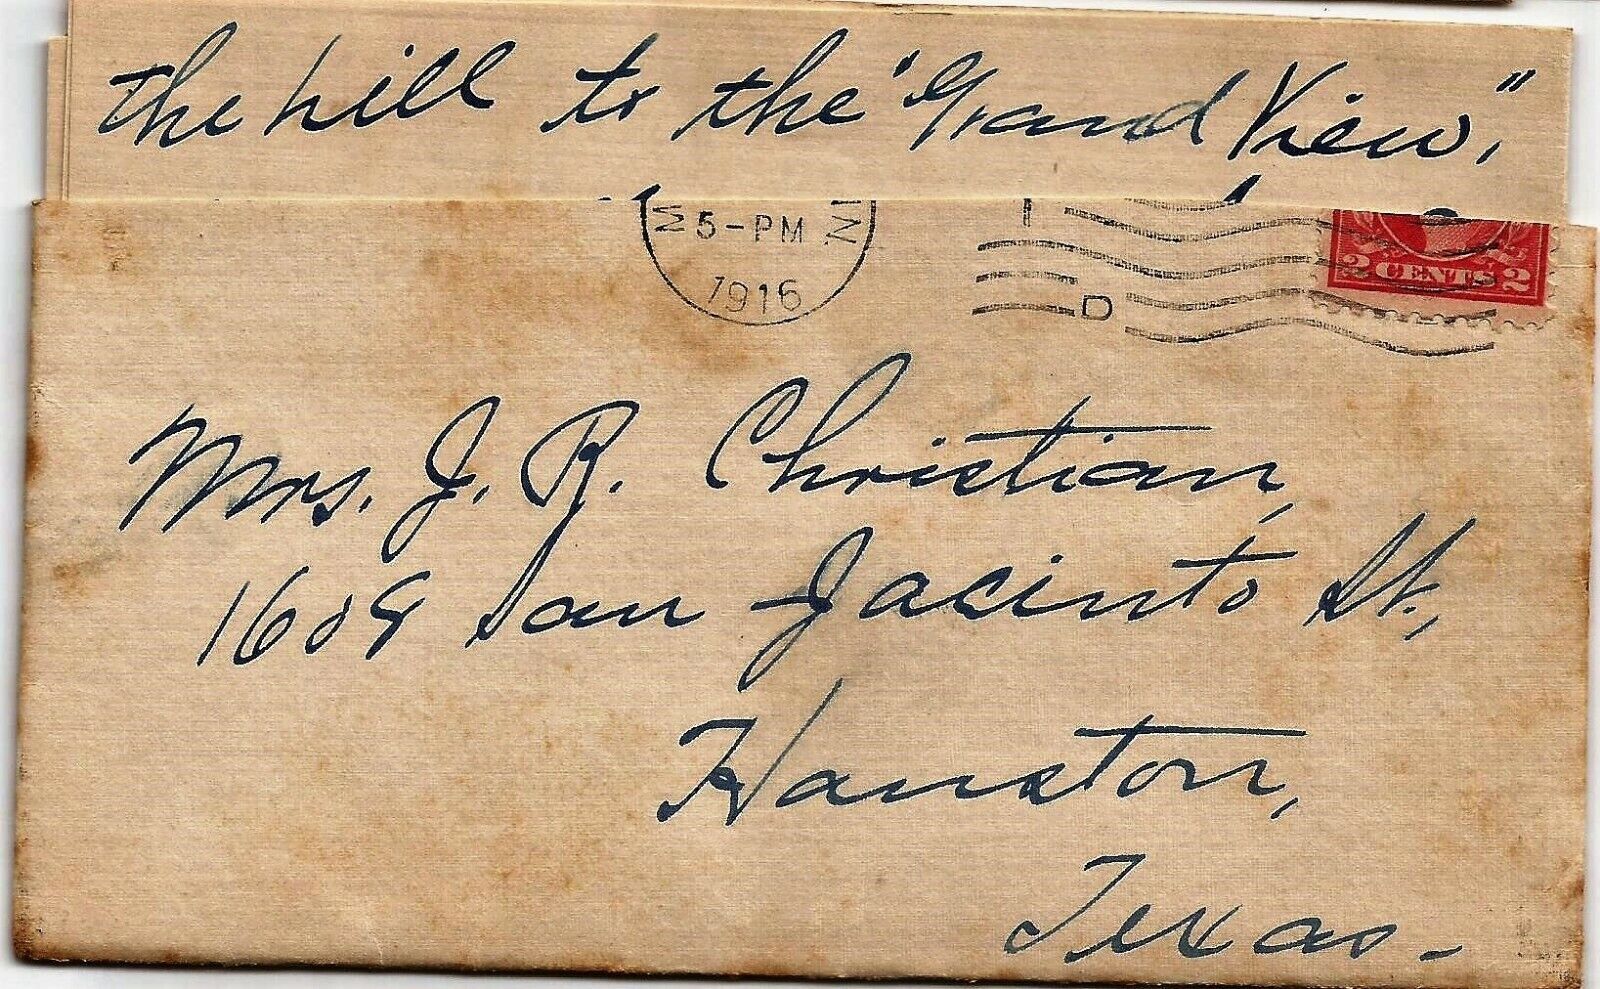 the hill to the "Grand View,"
M 5-PM NN
1916
D
2 CENTS 2
Mrs. J. R. Christian,
1609 San Jacinto St.,
Houston,
Texas-